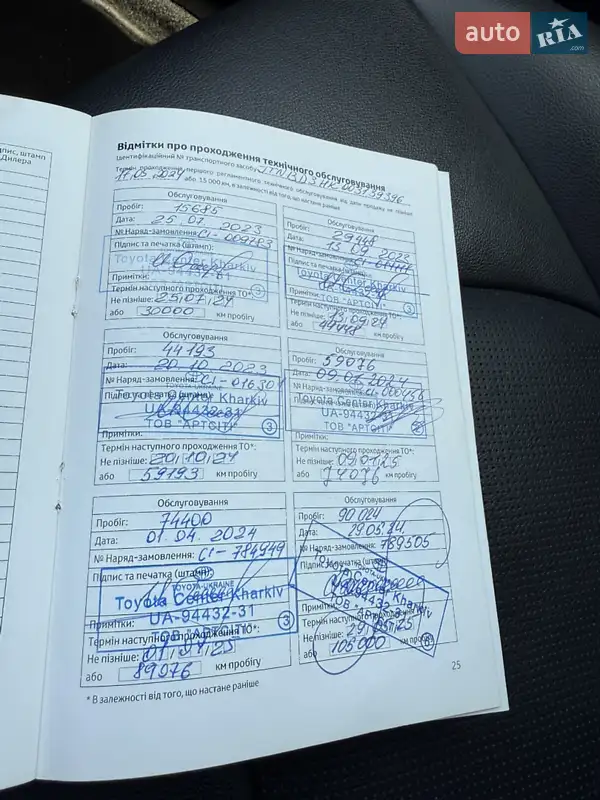 auto RIA.com
підпис, штамп
Дилера
Відмітки про проходження технічного обслуговування
Ідентифікаційний № транспортного засобу
Термін проходження першого регламентного технічного обслуговування від дати продажу не пізніше
17.05.2024 або 15 000 км, в залежності від того, що настане раніше
Обслуговування
Пробіг: 15685
Дата: 25 07 2023
№ Наряд-замовлення: СІ-009783
Підпис та печатка (штамп):
Toyota Center Kharkiv
UA-94432-31
3
Примітки:
Термін наступного проходження ТО*:
Не пізніше: 25.07.24
або 30000 км пробігу
Обслуговування
Пробіг: 29448
Дата: 13 09 2023
№ Наряд-замовлення:
Підпис та печатка (штамп):
Toyota Center Kharkiv
Примітки:
ТОВ "АРТСІТІ"
3
Термін наступного проходження ТО*:
Не пізніше: 13.09.24
або 44448 км пробігу
Обслуговування
Пробіг: 44193
Дата: 20.10.2023
№ Наряд-замовлення: СІ-016301
Підпис та печатка (штамп):
Toyota Center Kharkiv
UA-94432-31
ТОВ "АРТСІТІ"
3
Примітки:
Термін наступного проходження ТО*:
Не пізніше: 20.10.24
або 59193 км пробігу
Обслуговування
Пробіг: 59076
Дата: 09.01.2024
№ Наряд-замовлення: СІ-000456
Toyota Center Kharkiv
UA-94432-31
ТОВ "АРТСІТІ"
Примітки:
Термін наступного проходження ТО*:
Не пізніше: 09.01.25
або 74076 км пробігу
Обслуговування
Пробіг: 74400
Дата: 01.04.2024
№ Наряд-замовлення: СІ-784949
Підпис та печатка (штамп):
TOYOTA-UKRAINE
Toyota Center Kharkiv
UA-94432-31
3
Примітки:
Термін наступного проходження ТО*:
Не пізніше: 01.04.25
або 89076 км пробігу
Обслуговування
Пробіг: 90 024
Дата: 29.05.24
№ Наряд-замовлення: 789505
Підпис та печатка (штамп):
Примітки:
Термін наступного проходження ТО*:
Не пізніше: 29.05.25
або 105 000 км пробігу
* В залежності від того, що настане раніше
25